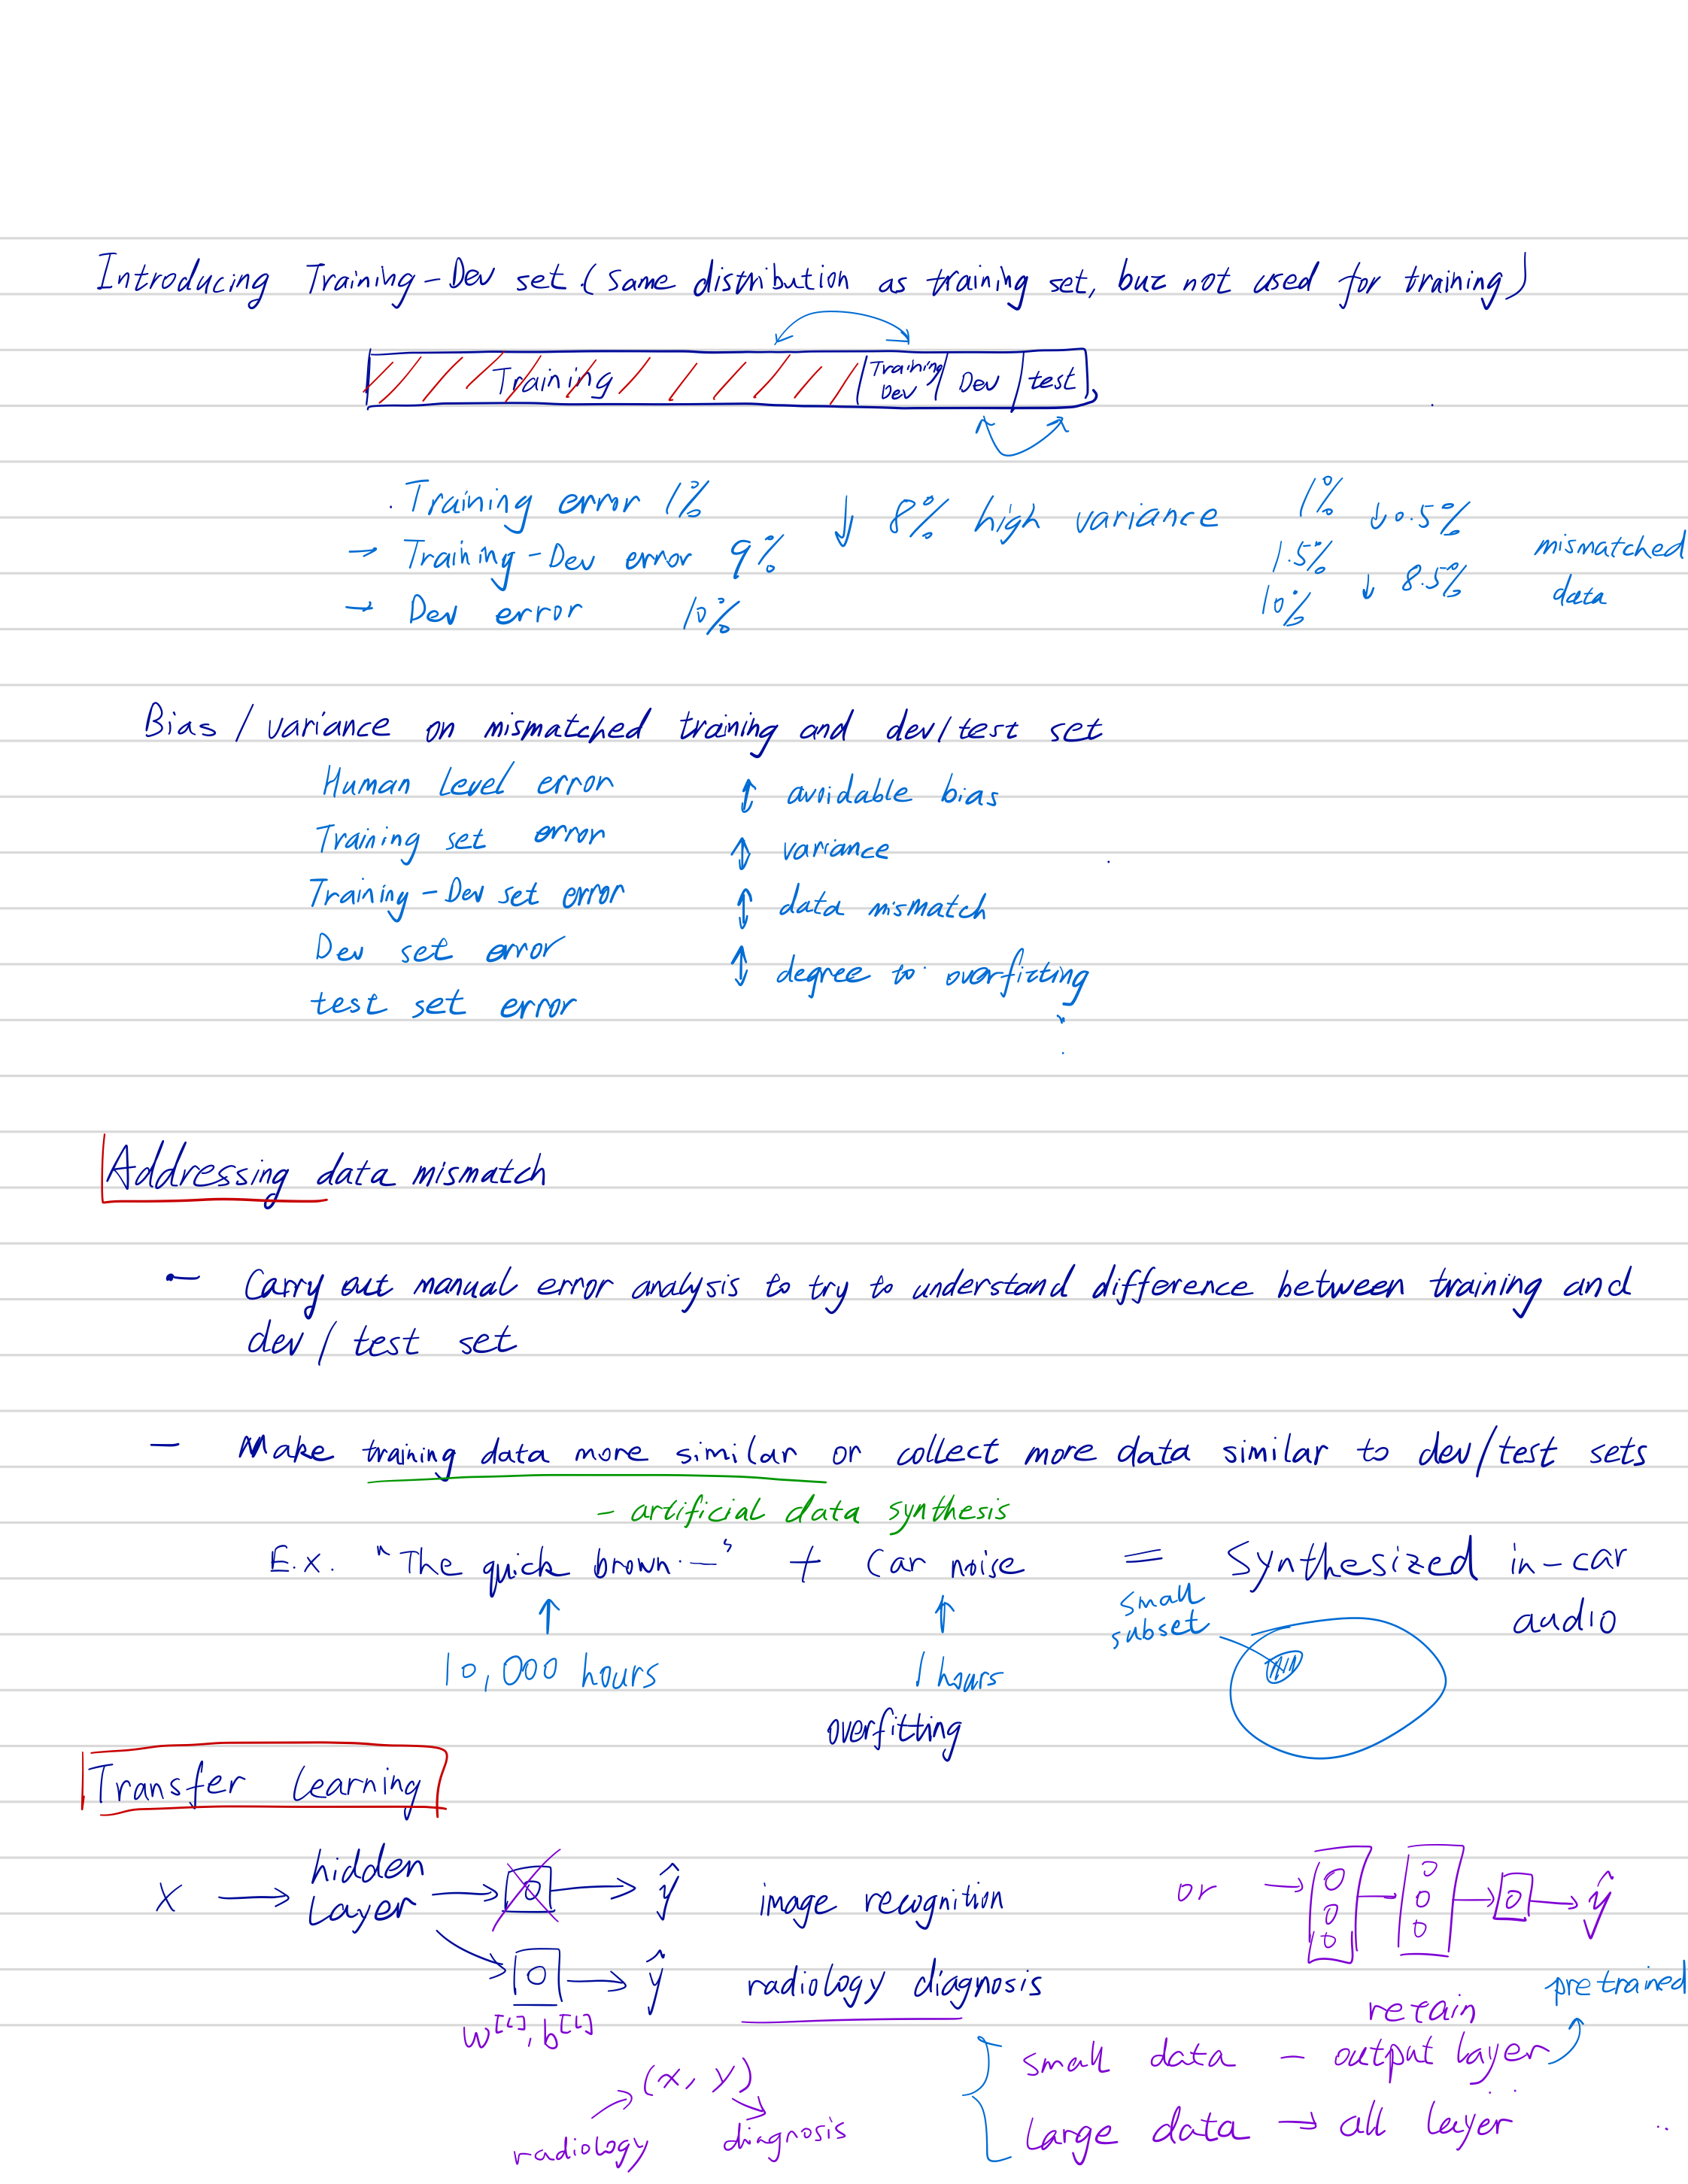 Introducing Training-Dev set (same distribution as training set, but not used for training)
Training
Training Dev
Dev
test
Training error 1%
→ Training-Dev error 9%
→ Dev error 10%
↓ 8% high variance
1%
1.5%
10%
↓0.5%
↓ 8.5%
mismatched
data
Bias / variance on mismatched training and dev/test set
Human level error
↕ avoidable bias
Training set error
↕ variance
Training-Dev set error
↕ data mismatch
Dev set error
↕ degree to overfitting
test set error
Addressing data mismatch
- Carry out manual error analysis to try to understand difference between training and
dev / test set
- Make training data more similar or collect more data similar to dev/test sets
- artificial data synthesis
E.x. "The quick brown.—" + Car noise = Synthesized in-car
audio
↑ ↑
small
subset
10,000 hours
1 hours
overfitting
Transfer learning
X → hidden
Layer → o → ŷ image recognition
o → ŷ radiology diagnosis
w[L], b[L]
(x, y)
radiology
diagnosis
or → o o o — o o o → o → ŷ
pretrained
retain
small data - output layer
Large data → all layer